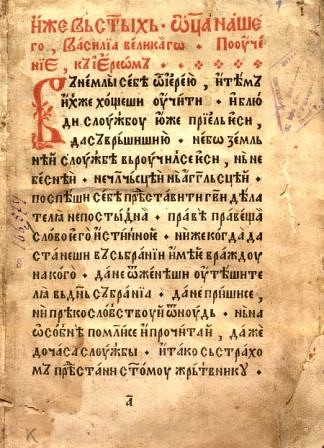 И҆́же въ ст҃ы́хъ · ѿца̀ на́ше
го , Васи́лїа вели́каго · Пооуче́
нїе , къ і҆ере́ѡмъ
Въне́млы себѣ̀ ѡ҆ і҆ере́ю , и҆ тѣ́мъ
и҆́хже хо́щеши оу҆чи́ти · и҆ блю
ди слоу́жбоу ю҆́же прїе́лъ е҆сѝ ,
да съврьши́шию · не бо̀ зе́мль
нѣй слоу́жбѣ въроучи́лсе е҆сѝ , нь не
бе́снѣй · не чл҃чьсцей нь а҆́гг҃льсцей ·
поспѣ́ши себѐ прѣста́вити гв҃и дѣ́ла
телꙗ̀ непосты́дна · пра́вѣ пра́веща
сло́во е҆го̀ и҆́стинное · ни́же когда̀ да
ста́неши въ събра́нїи и҆мѣ́й вражⷣоу
на ко́го · да не ѿже́неши оу҆тѣ́шите
лꙗ̀ въ дн҃ь събра́нїа · да не при́шисе ,
ни прѣкосло́вствоуй ѿноудь · нь на
ѡ҆со́бнѣ помли́се и҆ прочита́й , да́же
до ча́са слоу́жбы · и҆ та́ко съ стра́хо
мъ прѣста́ни ст҃омоу жрь́твникоу ·
а҃